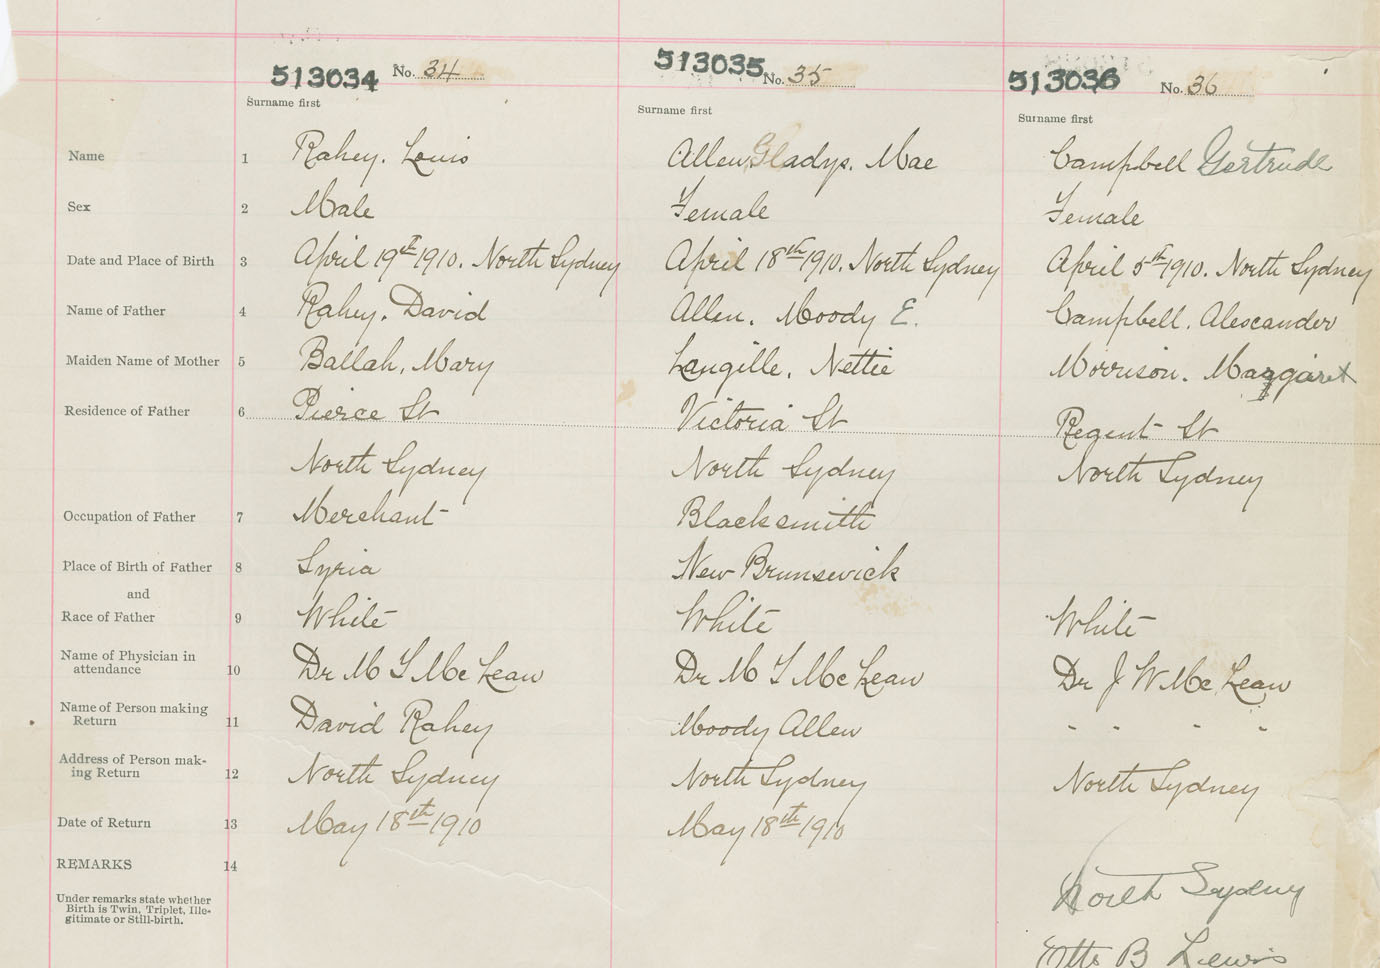 513034 No. 34 513035 No. 35 513036 No. 36
Surname first Surname first Surname first
Name 1 Rahey. Louis Allen Gladys. Mae Campbell Gertrude
Sex 2 Male Female Female
Date and Place of Birth 3 April 19th 1910. North Sydney April 18th 1910. North Sydney April 5th 1910. North Sydney
Name of Father 4 Rahey. David Allen. Moody E. Campbell. Alexcander
Maiden Name of Mother 5 Ballah, Mary Langille. Nettie Morrison. Margaret
Residence of Father 6 Pierce St Victoria St Regent St
North Sydney North Sydney North Sydney
Occupation of Father 7 Merchant Blacksmith
Place of Birth of Father 8 Syria New Brunswick
and
Race of Father 9 White White White
Name of Physician in
attendance 10 Dr M T McLean Dr M T McLean Dr J W McLean
Name of Person making
Return 11 David Rahey Moody Allen " " " "
Address of Person mak-
ing Return 12 North Sydney North Sydney North Sydney
Date of Return 13 May 18th 1910 May 18th 1910
REMARKS 14
Under remarks state whether
Birth is Twin, Triplet, Ille-
gitimate or Still-birth.
North Sydney
Otto B Lewis